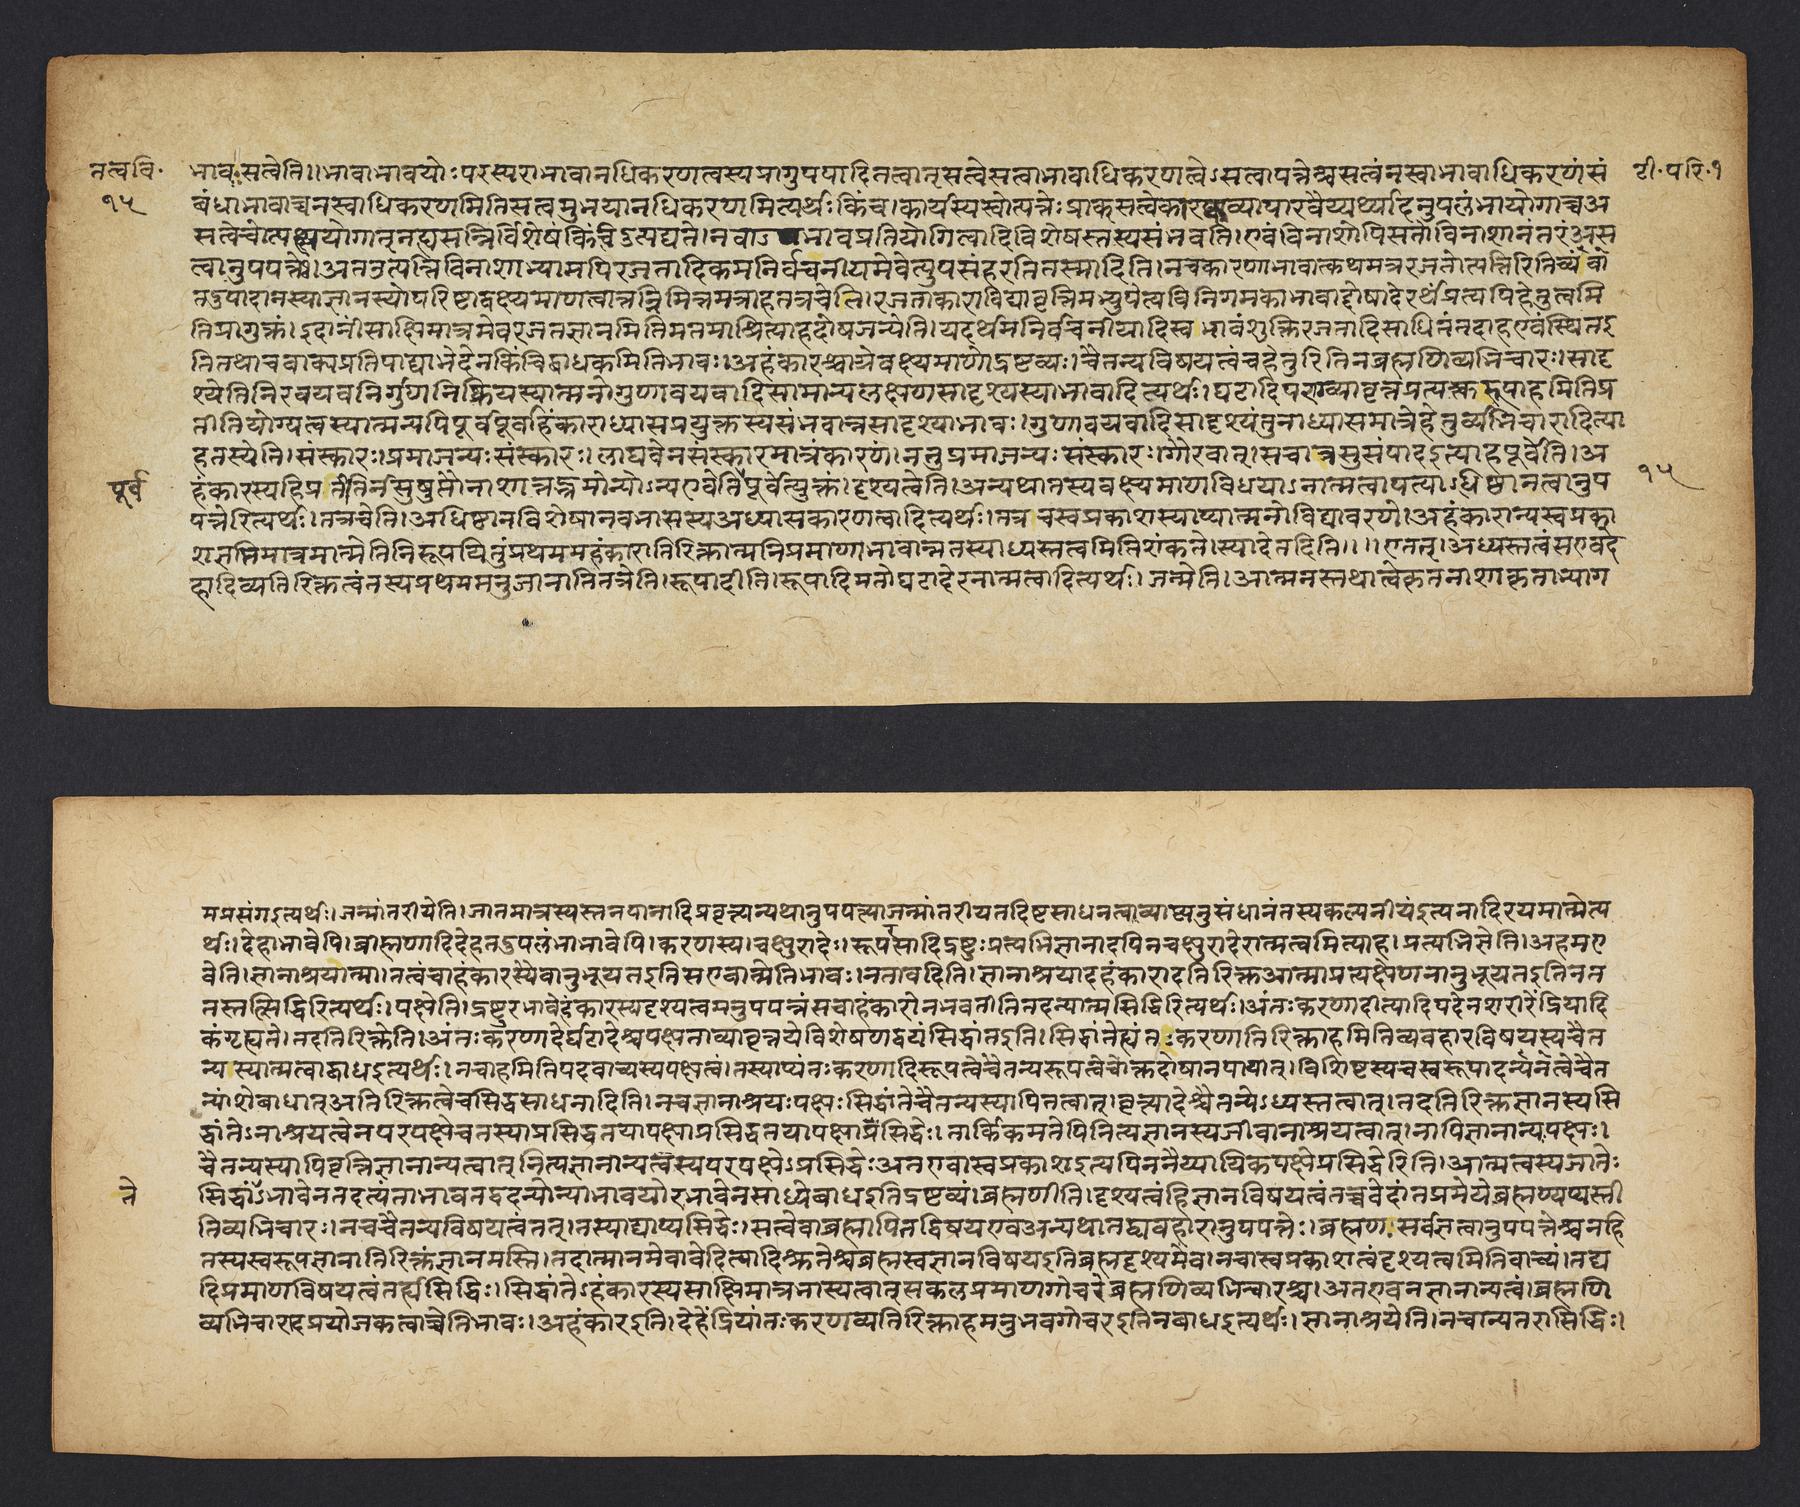 तत्ववि·
टी·परि·१
१५
भावःसत्वेति॥भावाभावयोःपरस्पराभावानधिकरणत्वस्यप्रागुपपादितत्वात्सत्वेसत्वाभावाधिकरणत्वेऽसत्वापत्तेश्चसत्वंनस्वाभावाधिकरणंसं
बंधाभावाच्चनस्वाधिकरणमितिसत्वमुभयानधिकरणमित्यर्थः।किंच।कार्यस्यस्वोत्पत्तेःप्राक्सत्वेकारकव्यापारवैय्यर्थ्यादनुपलंभायोगाच्चअ
सत्वेचोत्पत्त्ययोगात्नह्यसन्निर्विशेषंकिंचिदुत्पद्यते।नवाऽभावप्रतियोगित्वादिविशेषस्तस्यसंभवति।एवंविनाशेपिसतोविनाशानंतरंअस
त्वानुपपत्तेः।अतउत्पत्तिविनाशाभ्यामपिरजतादिकमनिर्वचनीयमेवेत्युपसंहरतितस्मादिति।नचकारणाभावात्कथमत्ररजतोत्पत्तिरितिव्यं
तउपादानस्याज्ञानस्योपरिष्टाद्वक्ष्यमाणत्वान्निमित्तमत्राहतत्रचेति।रजताकाराविद्यावृत्तिमभ्युपेत्यविनिगमकाभावाद्दोषादेरर्थंप्रत्यपिहेतुत्वमि
तिप्रागुक्तं।इदानींसाक्षिमात्रमेवरजतज्ञानमितिमतमाश्रित्याहदोषजन्येति।यदर्थमनिर्वचनीयादिस्वभावंशुक्तिरजतादिसाधितंतदाहएवंस्थितइ
तितथाचवाक्यप्रतिपाद्याभेदेनकिंचिद्बाधकमितिभावः।अहंकारश्चाग्रेवक्ष्यमाणोद्रष्टव्यः।चैतन्यविषयत्वंचहेतुरितिनब्रह्मणिव्यभिचारः।सादृ
श्येतिनिरवयवनिर्गुणनिष्क्रियस्यात्मनोगुणावयवादिसामान्यलक्षणसादृश्यस्याभावादित्यर्थः।घटादिपराग्व्यावृत्तप्रत्यक्त्वरूपाहमितिप्र
तीतियोग्यत्वस्यात्मन्यपिपूर्वपूर्वाहंकाराध्यासप्रयुक्तस्यसंभवान्नसादृश्याभावः।गुणावयवादिसादृश्यंतुनाध्यासमात्रेहेतुर्व्यभिचारादित्या
हतस्येति।संस्कारः।प्रमाजन्यःसंस्कारः।लाघवेनसंस्कारमात्रंकारणं।नतुप्रमाजन्यःसंस्कारः।गौरवात्।सचात्रसुसंपादइत्याहपूर्वेति।अ
पूर्व
१५
हंकारस्यहिप्रतीतिर्नसुषुप्तौनाशान्नह्यमोन्योऽन्यएवेतिपूर्वेत्युक्तं।दृश्यत्वेति।अन्यथातस्यवक्ष्यमाणविधयाऽनात्मत्वापत्त्याऽधिष्ठानत्वानुप
पत्तेरित्यर्थः।तत्रचेति।अधिष्ठानविशेषानवभासस्यअध्यासकारणत्वादित्यर्थः।तत्रचस्वप्रकाशस्याप्यात्मनोविद्यावरणे।अहंकारान्यस्वप्रका
शज्ञप्तिमात्रमात्मेतिनिरूपयितुंप्रथममहंकारातिरिक्तात्मनिप्रमाणाभावान्मतस्याध्यस्तत्वमितिशंकते।स्यादेतदिति।।।।एतत्।अध्यस्तत्वंसएवदे
हादिव्यतिरिक्तत्वंतस्यप्रथममनुजानातितत्रेति।रूपादीति।रूपादिमतोघटादेरनात्मत्वादित्यर्थः।जन्मेति।आत्मनस्तथात्वेकृतनाशाकृताभ्याग
मप्रसंगइत्यर्थः।जन्मांतरीयेति।जातमात्रस्यस्तनपानादिप्रवृत्त्यन्यथानुपपत्त्याजन्मांतरीयतदिष्टसाधनत्वाव्याप्त्यनुसंधानंतस्यकल्पनीयंइत्यनादिरयमात्मेत्य
र्थः।देहाभावेपि।ब्राह्मणादिदेहतउपलंभाभावेपि।करणस्य।चक्षुरादेः।रूपरसादिद्रष्टुःप्रत्यभिज्ञानादपिनचक्षुरादेरात्मत्वमित्याह।प्रत्यभिज्ञेति।अहमए
वेति।ज्ञानाश्रयात्मा।तत्वंचाहंकारस्यैवानुभूयतइतिसएवात्मेतिभावः।नतावदिति।ज्ञानाश्रयादहंकारादतिरिक्तआत्माप्रत्यक्षेणनानुभूयतइतिनत
तस्तत्सिद्धिरित्यर्थः।पक्षेति।द्रष्टुरभावेहंकारस्यदृश्यत्वमनुपपन्नंसचाहंकारोनभवतीतितदन्यात्मसिद्धिरित्यर्थः।अंतःकरणादीत्यादिपदेनशरीरेंद्रियादि
कंगृह्यते।तदतिरिक्तेति।अंतःकरणादेर्घटादेश्चपक्षताव्यावृत्तयेविशेषणद्वयंसिद्धांतइति।सिद्धांतेह्यंतःकरणातिरिक्ताहमितिव्यवहारविषयस्यचैत
न्यस्यात्मत्वाद्बाधइत्यर्थः।नचाहमितिपदवाच्यस्यपक्षत्वं।तस्याप्यंतःकरणादिरूपत्वेचैतन्यरूपत्वेचोक्तदोषानपायात्।विशिष्टस्यचस्वरूपादन्यत्वेनचैत
न्यांशेबाधात्अतिरिक्तत्वेचसिद्धसाधनादिति।नचज्ञानाश्रयःपक्षःसिद्धांतेचैतन्यस्यापितत्वात्।वृत्त्यादेश्चैतन्येऽध्यस्तत्वात्।तदतिरिक्तज्ञानस्यसि
द्धांतेऽनाश्रयत्वेनपरपक्षेचतस्याप्रसिद्धतयापक्षाप्रसिद्धेः।तार्किकमतेपिनित्यज्ञानस्यजीवानाश्रयत्वात्।नापिज्ञानान्यःपक्षः।
चैतन्यस्यापिवृत्तिज्ञानान्यत्वात्नित्यज्ञानान्यत्वस्यपरपक्षेऽप्रसिद्धेःअतएवास्वप्रकाशइत्यपिननैय्यायिकपक्षेप्रसिद्धेरिति।आत्मत्वस्यजातेः
ते
सिद्धांऽभावेनतदत्यंताभावतद्वदन्योन्याभावयोरभावेनसाध्येबाधइतिद्रष्टव्यं।ब्रह्मणीति।दृश्यत्वंहिज्ञानविषयत्वंतच्चवेदांतप्रमेयेब्रह्मण्यप्यस्ती
तिव्यभिचारः।नचचैतन्यविषयत्वंतत्।तस्याद्याप्यसिद्धेः।सत्वेवाब्रह्मापितद्विषयएवअन्यथातद्व्यवहारानुपपत्तेः।ब्रह्मणःसर्वज्ञत्वानुपपत्तेश्चनहि
तस्यस्वरूपज्ञानातिरिक्तंज्ञानमस्ति।तदात्मानमेवावेदित्यादिश्रुतेश्चब्रह्मस्वज्ञानविषयइतिब्रह्मदृश्यमेव।नचास्वप्रकाशत्वंदृश्यत्वमितिवाच्यं।तद्य
दिप्रमाणविषयत्वंतर्ह्यसिद्धिः।सिद्धांतेऽहंकारस्यसाक्षिमात्रभास्यत्वात्सकलप्रमाणगोचरेब्रह्मणिव्यभिचारश्च।अतएवनज्ञानान्यत्वं।ब्रह्मणि
व्यभिचारादप्रयोजकत्वाच्चेतिभावः।अहंकारइति।देहेंद्रियांतःकरणव्यतिरिक्ताहमनुभवगोचरइतिनबाधइत्यर्थः।ज्ञानाश्रयेति।नचान्यतरासिद्धिः।